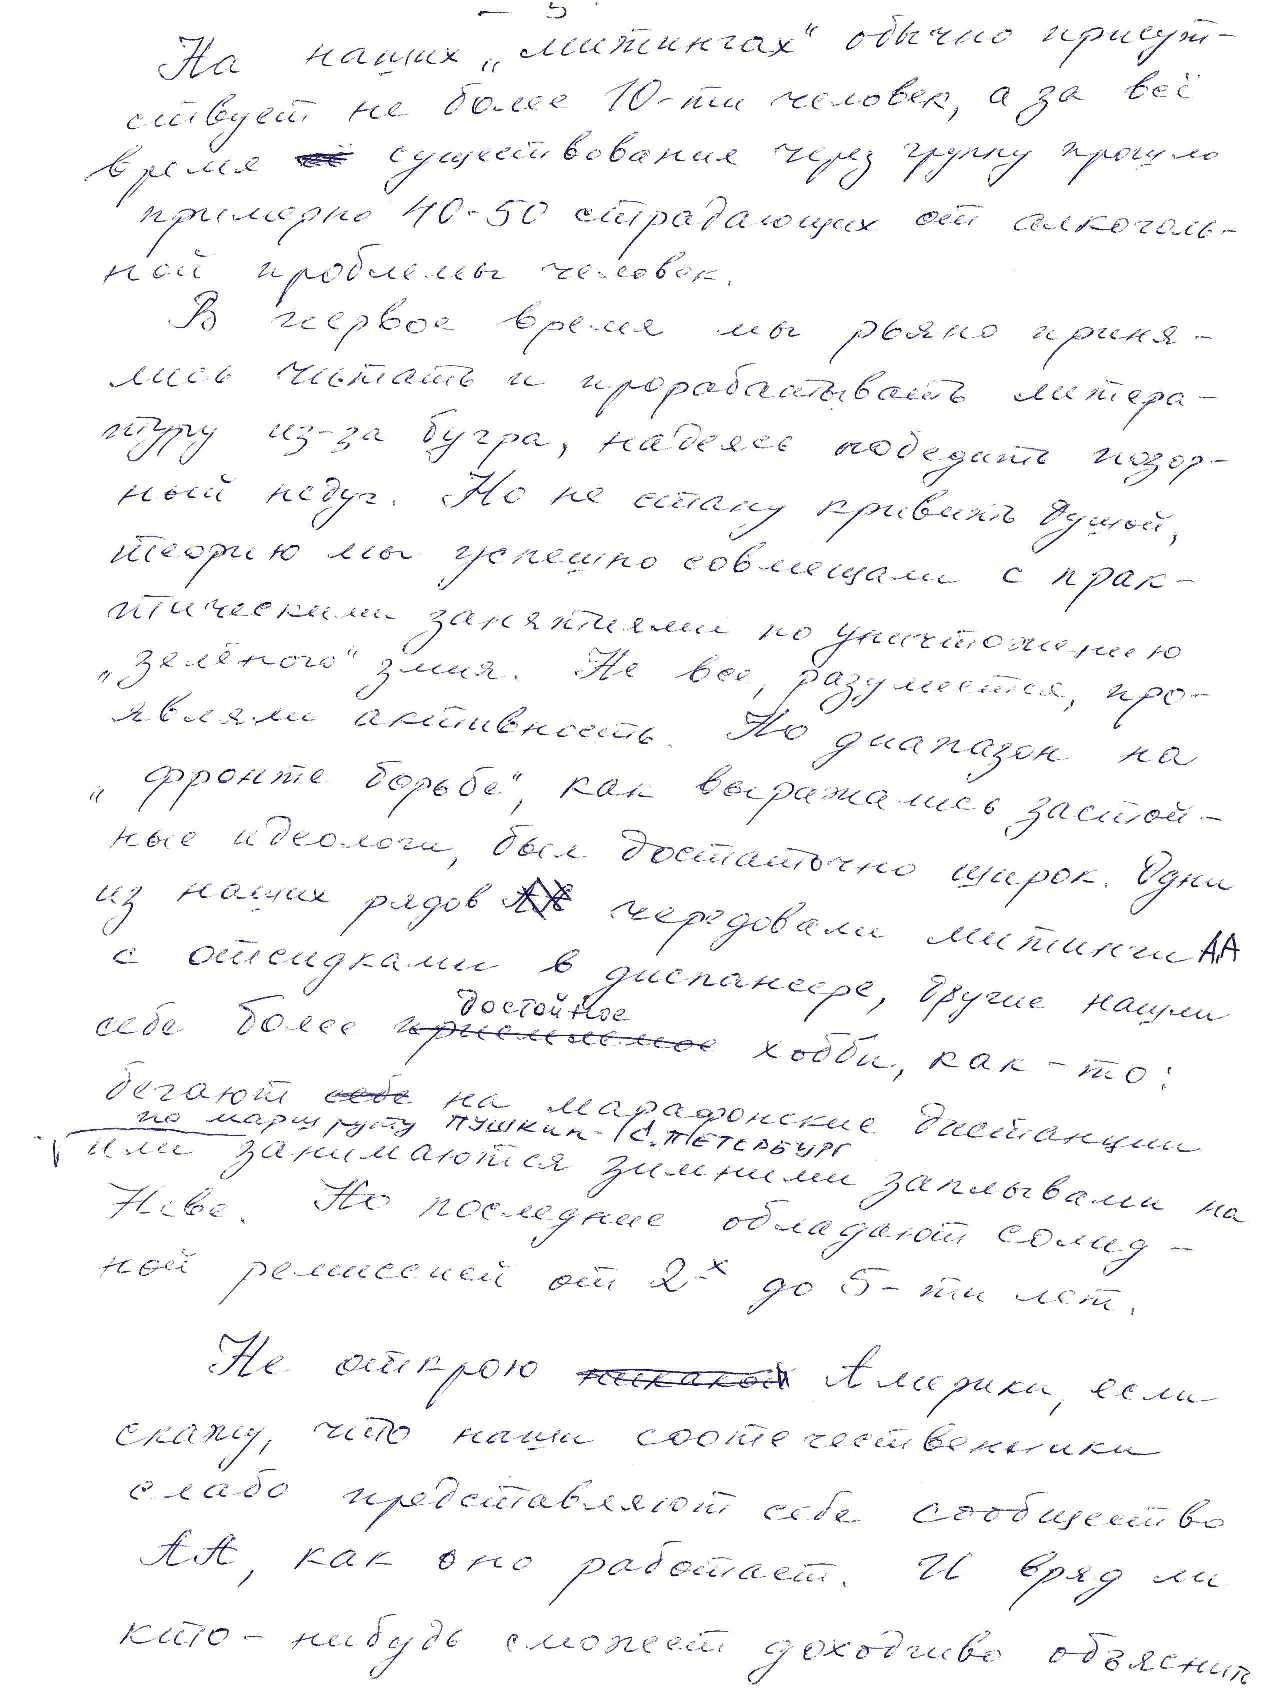 - 3 -
На наших „митингах“ обычно присут-
ствует не более 10-ти человек, а за всё
время её существования через группу прошло
примерно 40-50 страдающих от алкоголь-
ной проблемы человек.
В первое время мы рьяно приня-
лись читать и прорабатывать литера-
туру из-за бугра, надеясь победить позор-
ный недуг. Но не стану кривить душой,
теорию мы успешно совмещали с прак-
тическими занятиями по уничтожению
„зелёного“ змия. Не все, разумеется, про-
являли активность. Но диапазон на
„фронте борьбе“, как выражались застой-
ные идеологи, был достаточно широк. Одни
из наших рядов АА чередовали митинги АА
с отсидками в диспансере, другие нашли
достойное
себе более приемлемое хобби, как-то:
бегают себе на марафонские дистанции
по маршруту ПУШКИН-С.ПЕТЕРБУРГ
или занимаются зимними заплывами на
Неве. Но последние обладают солид-
ной ремиссией от 2-х до 5-ти лет.
Не открою никакой Америки, если
скажу, что наши соотечественники
слабо представляют себе сообщество
АА, как оно работает. И вряд ли
кто-нибудь сможет доходчиво объяснить